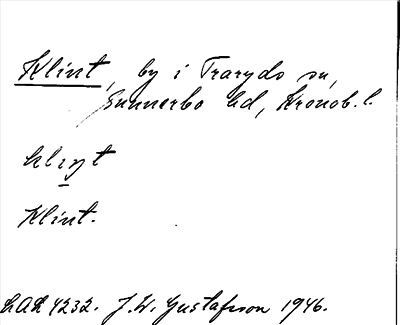 Klint, by i Traryds sn,
Sunnerbo hd, Kronob. l.
klıṉt
Klint.
LAL 4232. J. W. Gustafsson 1946.